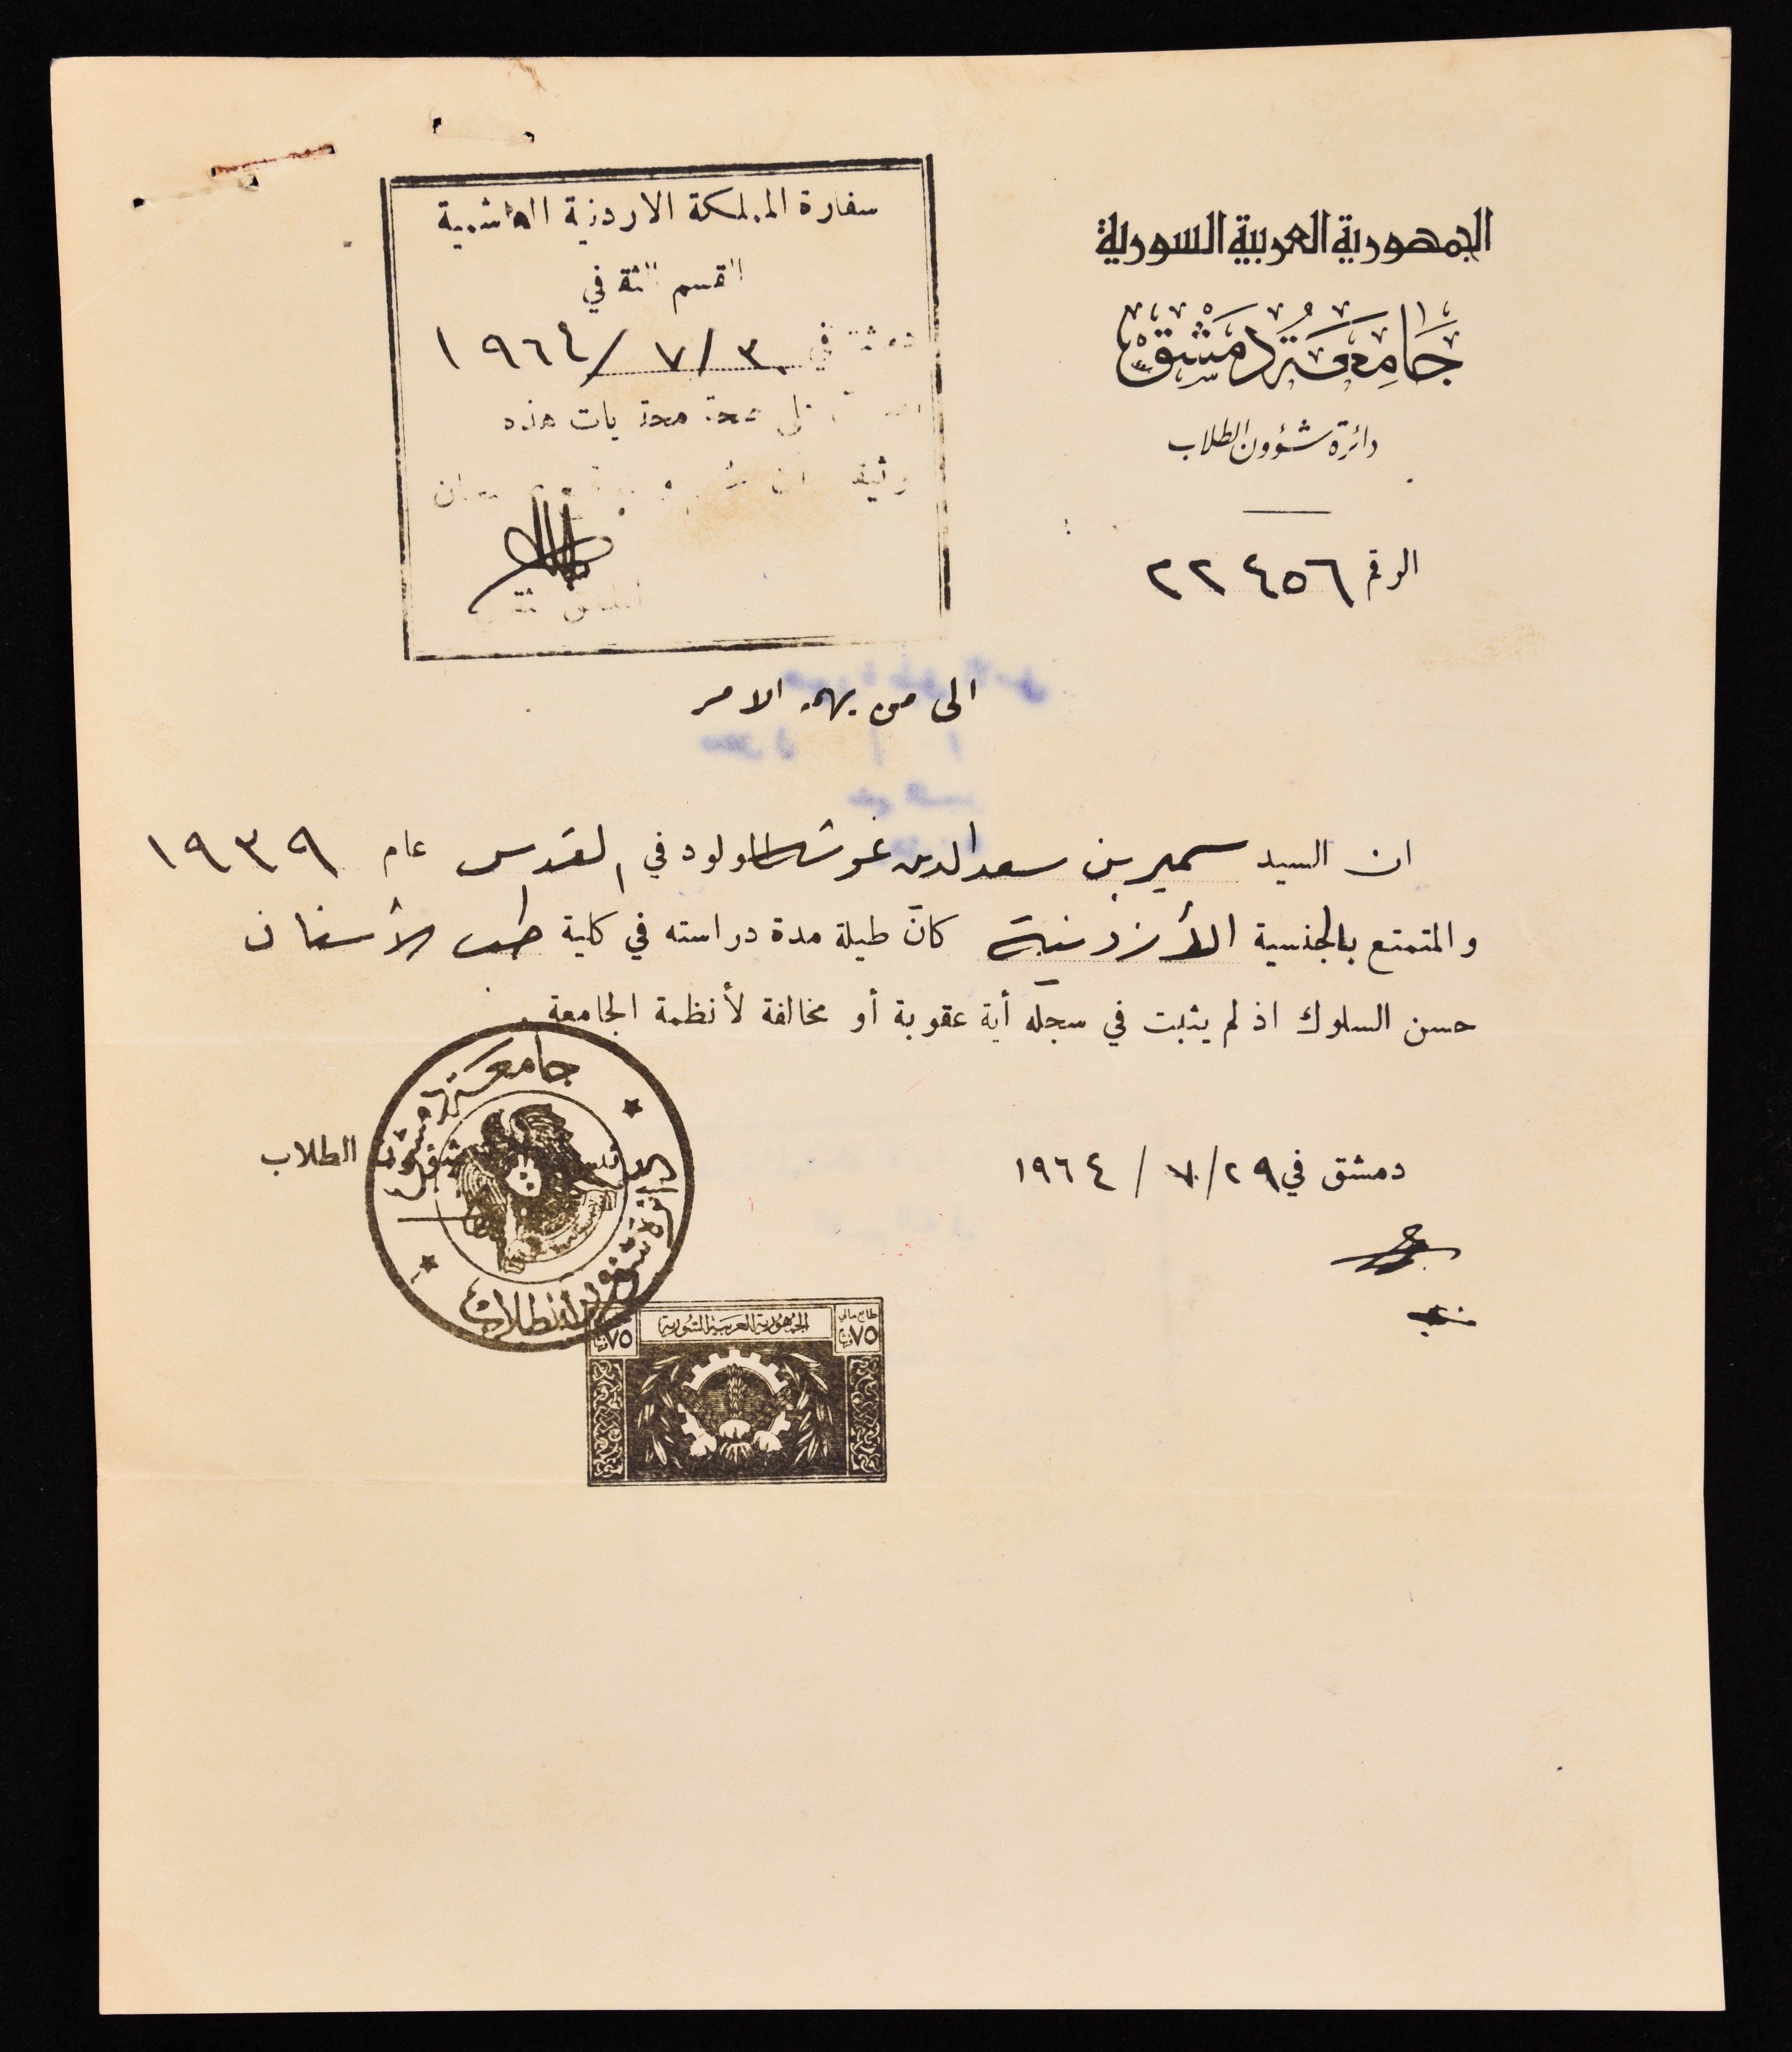 الجمهورية العربية السورية
جَامِعَة دِمَشْق
دائرة شؤون الطلاب
الرقم ٢٢٤٥٦
سفارة المملكة الاردنية الهاشمية
القسم الثقافي
دمشق في ١٩٦٤/٧/٣٠
صحة محتويات هذه
الى من يهمه الامر
ان السيد سمير بن سعد الدين غوشه المولود في القدس عام ١٩٣٩
والمتمتع بالجنسية الأردنية كان طيلة مدة دراسته في كلية طب الأسنان
حسن السلوك اذ لم يثبت في سجله أية عقوبة أو مخالفة لأنظمة الجامعة .
دمشق في ٢٩/ ٧ / ١٩٦٤
الطلاب
جامعة دمشق
دائرة شؤون الطلاب
الجمهورية العربية السورية
طابع مالي
٧٥
٧٥